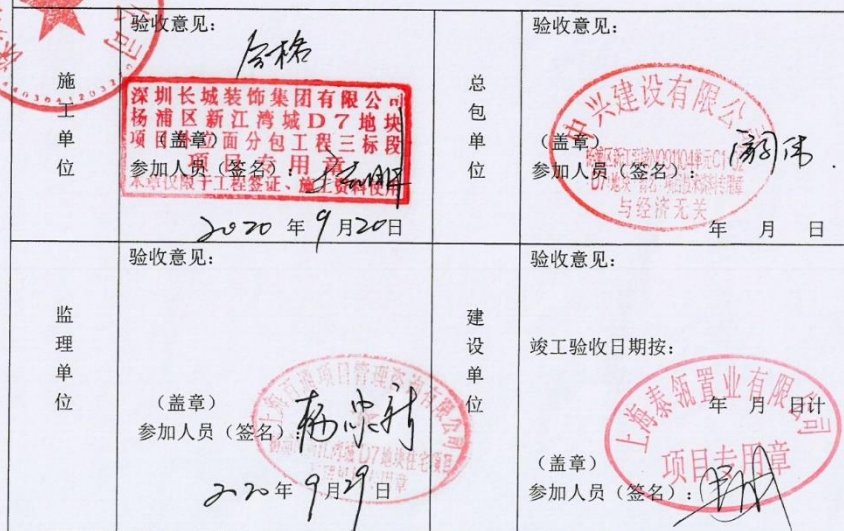 施工单位
验收意见：
合格
深圳长城装饰集团有限公司
杨浦区新江湾城D7地块
项目外立面分包工程三标段
项目专用章
本章仅限于工程签证、施工资料使用
（盖章）
参加人员（签名）：
2020年9月20日
总包单位
验收意见：
中兴建设有限公司
（盖章）
参加人员（签名）：
与经济无关
年 月 日
监理单位
验收意见：
（盖章）
参加人员（签名）：
D7地块住宅项目
2020年9月29日
建设单位
验收意见：
竣工验收日期按：
年 月 日计
上海泰瓴置业有限公司
项目专用章
（盖章）
参加人员（签名）：